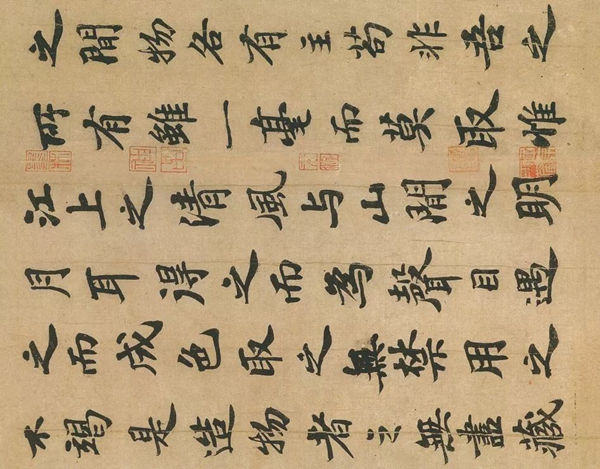 之間物各有主苟非吾之
所有雖一毫而莫取惟
江上之清風与山間之明
月耳得之而為聲目遇
之而成色取之無禁用之
不竭是造物者之無盡藏